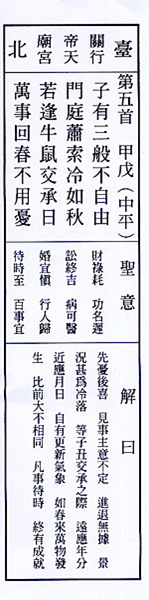 臺北
關帝廟
行天宮
第五首 甲戌（中平）
子有三般不自由
門庭蕭索冷如秋
若逢牛鼠交承日
萬事回春不用憂
聖意
財祿耗 功名遲
訟終吉 病可醫
婚宜慎 行人歸
待時至 百事宜
解曰
先憂後喜 見事主意不定 進退無據 景
況甚爲冷落 等子丑交承之際 遠應年分
近應月日 自有更新氣象 如春來萬物發
生 比前大不相同 凡事待時 終有成就